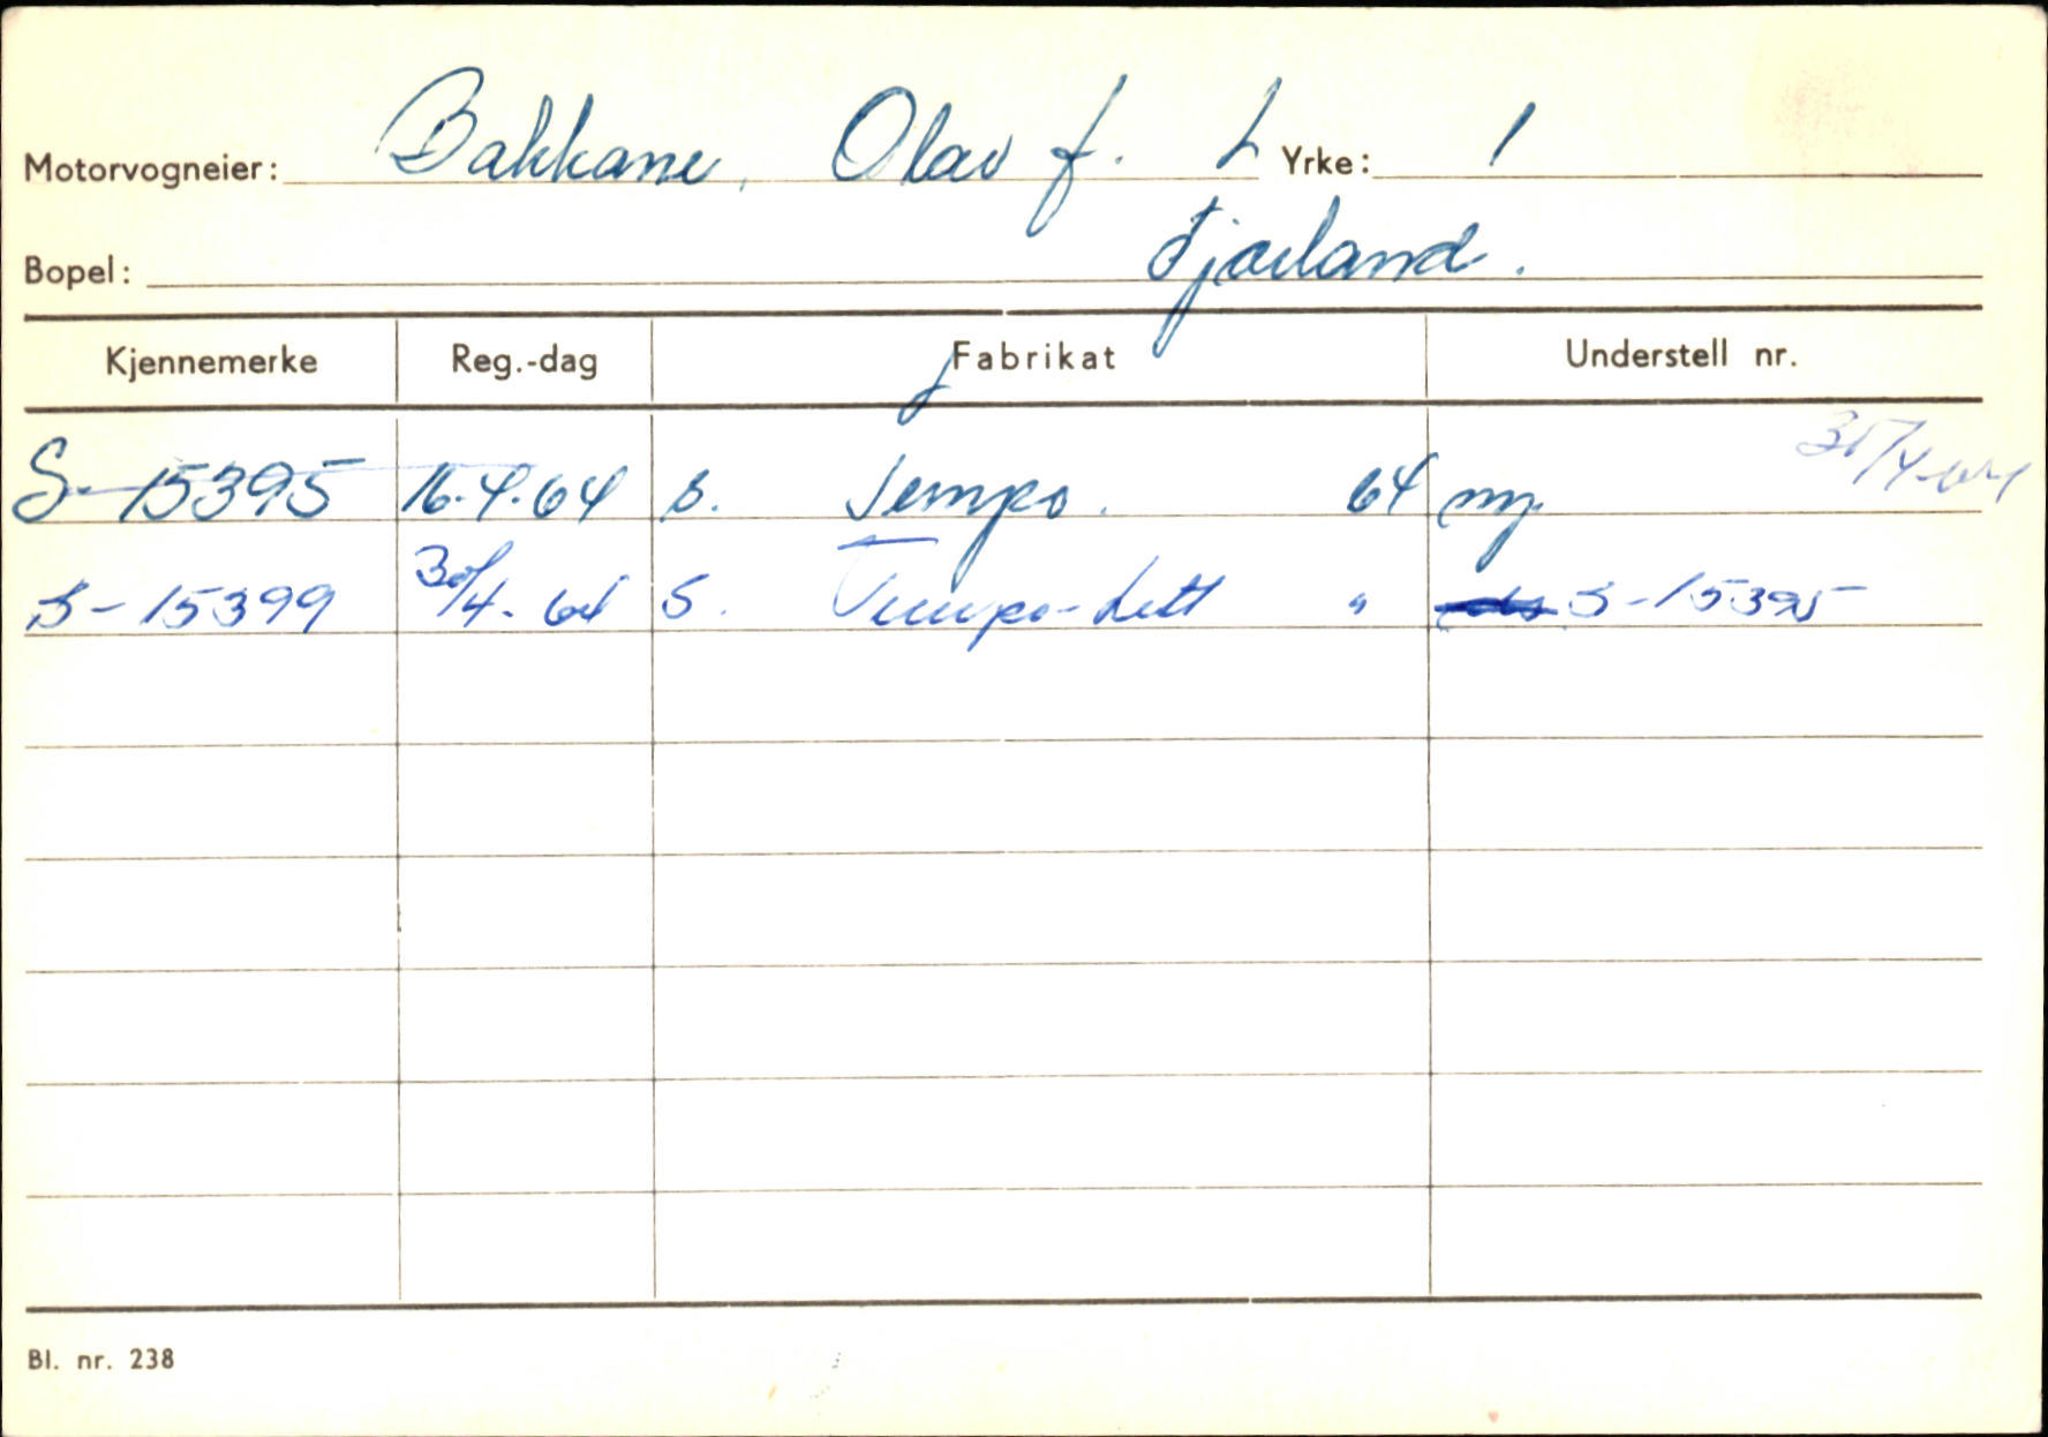 Motorvogneier: Bakkane, Olav J. L Yrke: 1
Bopel: Fjærland.
Kjennemerke Reg.-dag Fabrikat Understell nr.
S-15395 16.4.64 s. Tempo. 64 ny. 30/4-64
S-15399 30/4-64 S. Tempo-Lett " S-15395
Bl. nr. 238